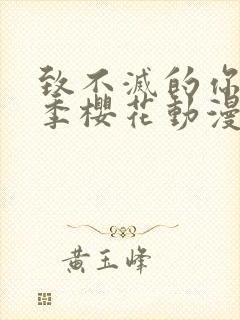 致不滅的你
季櫻花動漫
黄玉峰